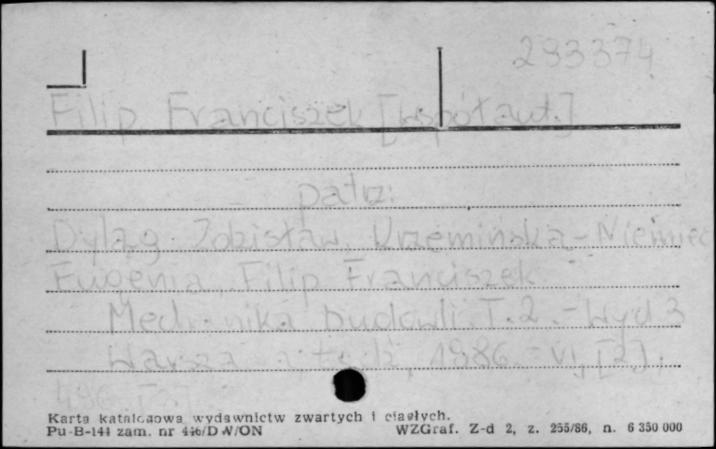 293374
Filip Franciszek [współaut.]
patrz:
Dyląg Zdzisław, Krzemińska-Niemiec
Eugenia, Filip Franciszek
Mechanika budowli. T. 2. - Wyd 3
1986. - VI, [2],
Karta katalogowa wydawnictw zwartych i ciągłych.
Pu-B-144 zam. nr WZGraf. Z-d 2, z. 255/86, n. 6 350 000